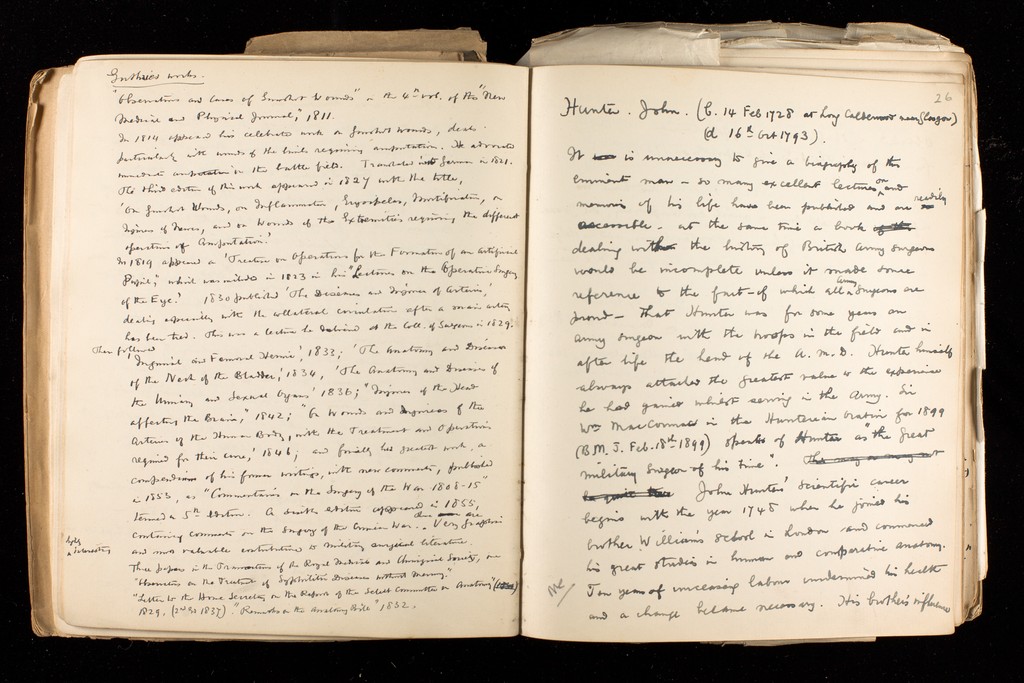 Guthrie's works.
"Observations and Cases of Gunshot Wounds" in the 4th vol. of the "New
Medical and Physical Journal," 1811.
In 1814 appeared his celebrated work on Gunshot wounds, deals
particularly with wounds of the limbs requiring amputation. He advocated
immediate amputation on the battle field. Translated into German in 1821.
The third edition of this work appeared in 1827 with the title,
'On Gunshot Wounds, on Inflammation, Erysipelas, Mortification, on
Injuries of Nerves, and on Wounds of the Extremities requiring the different
operations of Amputation.'
In 1819 appeared a 'Treatise on Operations for the Formation of an Artificial
Pupil,' which was included in 1823 in his "Lectures on the Operative Surgery
of the Eye." 1830 published 'The Diseases and Injuries of Arteries,'
dealing especially with the collateral circulation after a main artery
has been tied. This was a lecture he delivered at the Coll. of Surgeons in 1829.
Then followed
'Inguinal and Femoral Hernia', 1833; 'The Anatomy and Diseases
of the Neck of the Bladder,' 1834, 'The Anatomy and Diseases of
the Urinary and Sexual Organs' 1836; "Injuries of the Head
affecting the Brain," 1842; "On Wounds and Injuries of the
Arteries of the Human Body, with the Treatment and Operations
required for their cure,' 1846; and finally his greatest work, a
compendium of his former writings, with new comments, published
in 1853, as "Commentaries on the Surgery of the War 1808-15"
termed a 5th Edition. A sixth edition appeared in 1855,
containing comments on the Surgery of the Crimean War. Very graphic
highly interesting
and most valuable contributions to military surgical literature.
Three papers in the Transactions of the Royal Medical and Chirurgical Society, one
"Observations on the Treatment of Syphilitic Diseases without Mercury."
"Letter to the Home Secretary on the Report of the Select Committee on Anatomy"
1829. (2nd Ed 1837) "Remarks on the Anatomy Bill" 1832.
26
Hunter. John. (b. 14 Feb 1728 at Long Calderwood near Glasgow)
(d 16th Oct 1793).
It is unnecessary to give a biography of the
eminent man - so many excellent lectures on and
memoirs of his life have been published and are readily
accessible. at the same time a book
dealing with the history of British Army Surgeons
would be incomplete unless it made some
reference to the fact - of which all Army Surgeons are
proud - that Hunter was for some years an
army surgeon with the troops in the field and in
after life the head of the A. M. D. Hunter himself
always attached the greatest value to the experience
he had gained whilst serving in the Army. Sir
Wm MacCormac in the Hunterian Oration for 1899
(B.M.J. Feb. 18th 1899) speaks of Hunter as "the Great
military Surgeon of his time".
John Hunter's scientific career
begins with the year 1748 when he joined his
brother William's school in London and commenced
his great studies in human and comparative anatomy.
Ten years of unceasing labour undermined his health
and a change became necessary. His brother's influence